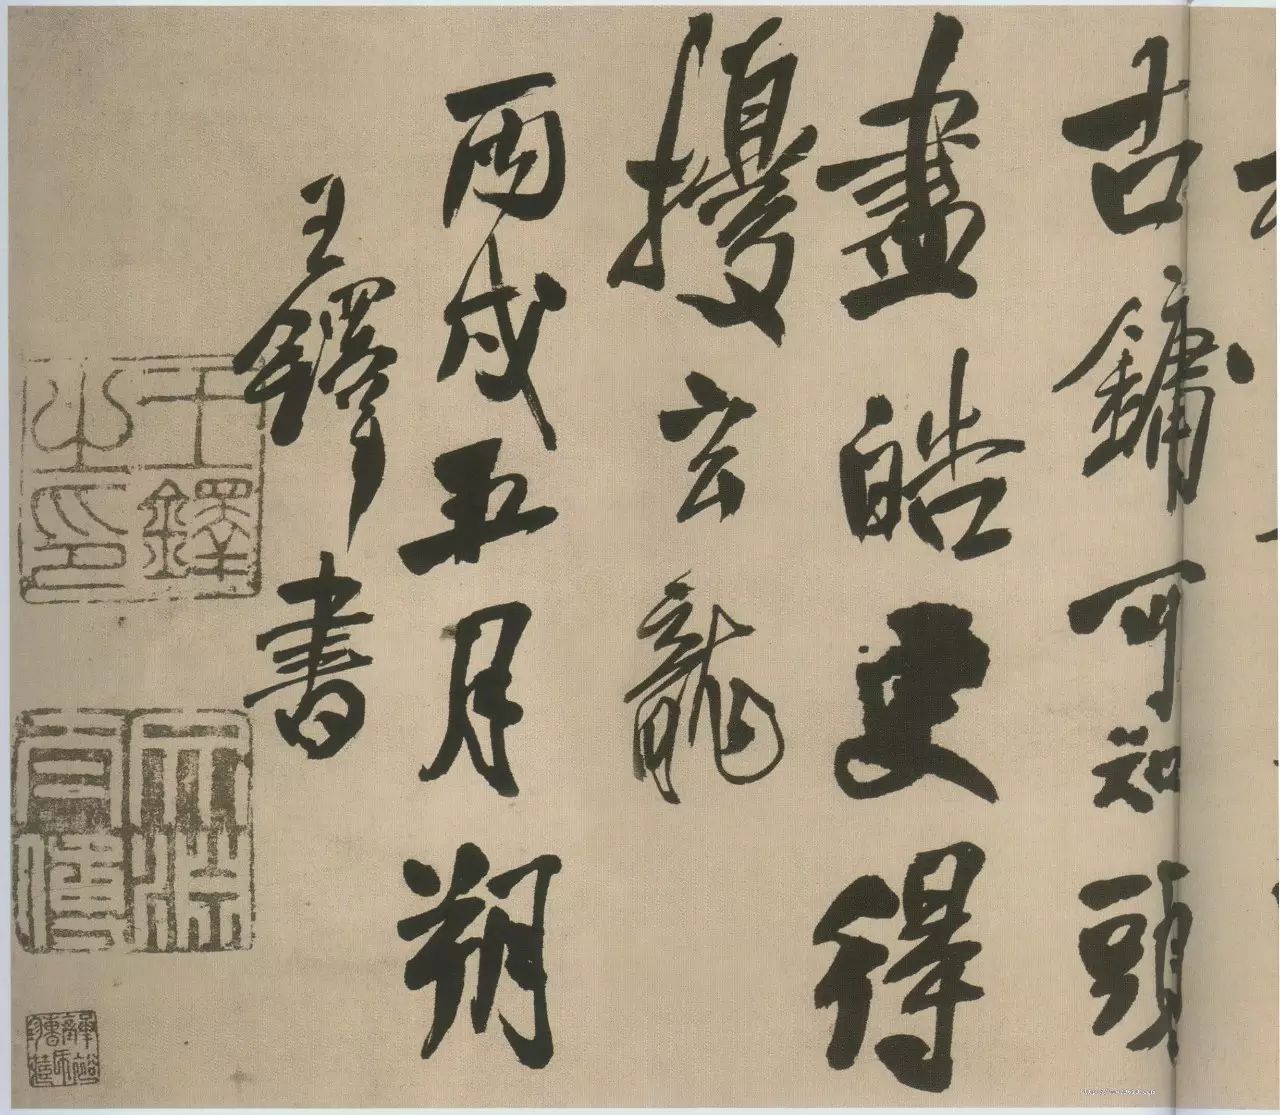 古鏞可知頭
盡皓更得
擾玄龍
丙戌五月朔
王鐸書
王鐸
之印